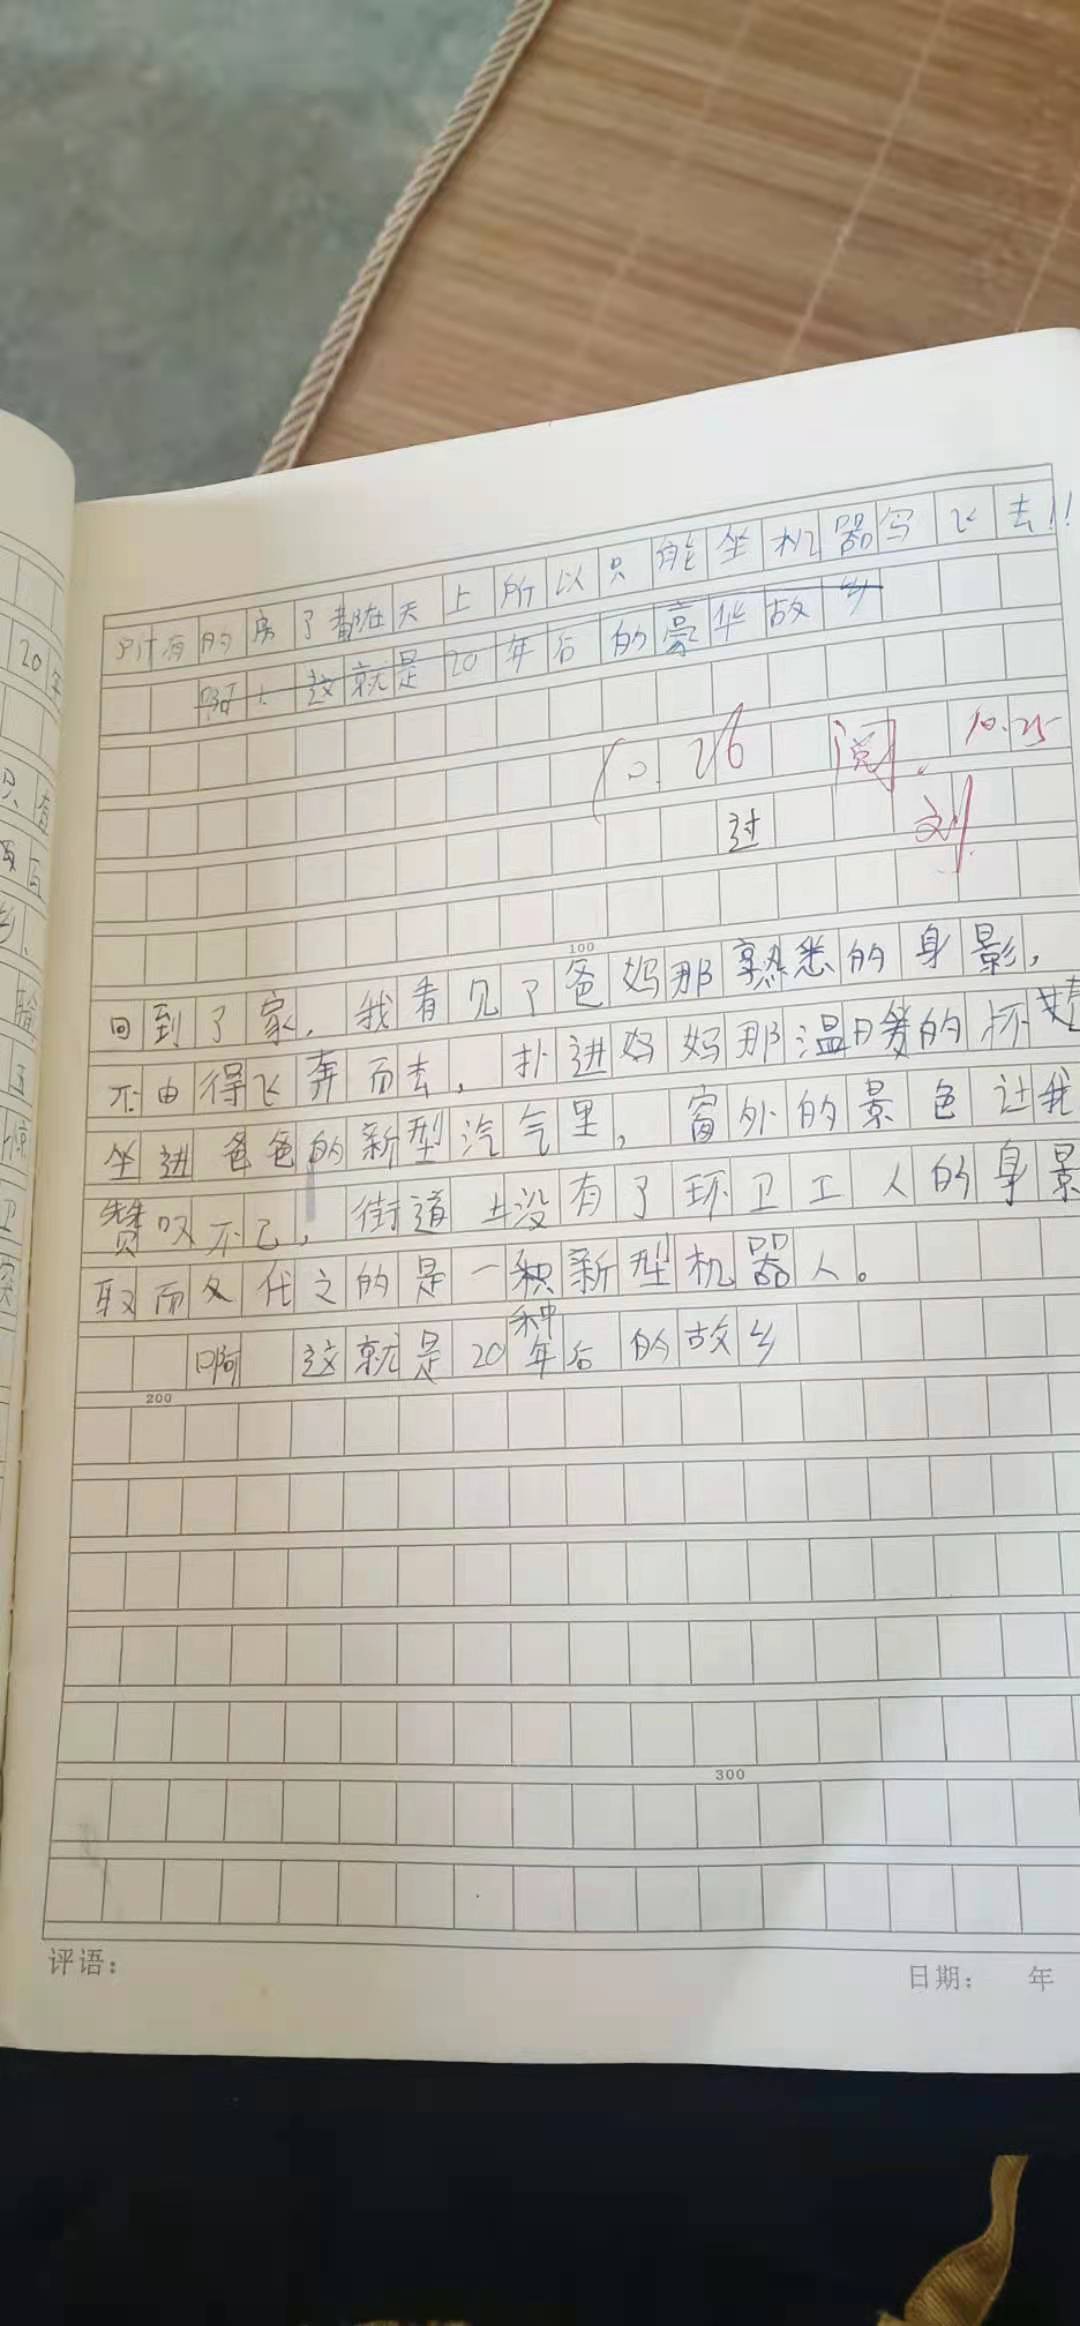 所有的房了都在天上所以只能坐机器鸟飞去!!
啊!这就是20年后的豪华故乡
10.26 阅 10.25
过 刘
100
回到了家,我看见了爸妈那熟悉的身影,
不由得飞奔而去,扑进妈妈那温暖的怀
坐进爸爸的新型汽气里,窗外的景色让我
赞叹不已,街道上没有了环卫工人的身景
取而代之的是一种新型机器人。
啊 这就是20年后的故乡
200
300
评语:
日期: 年
20年
只有